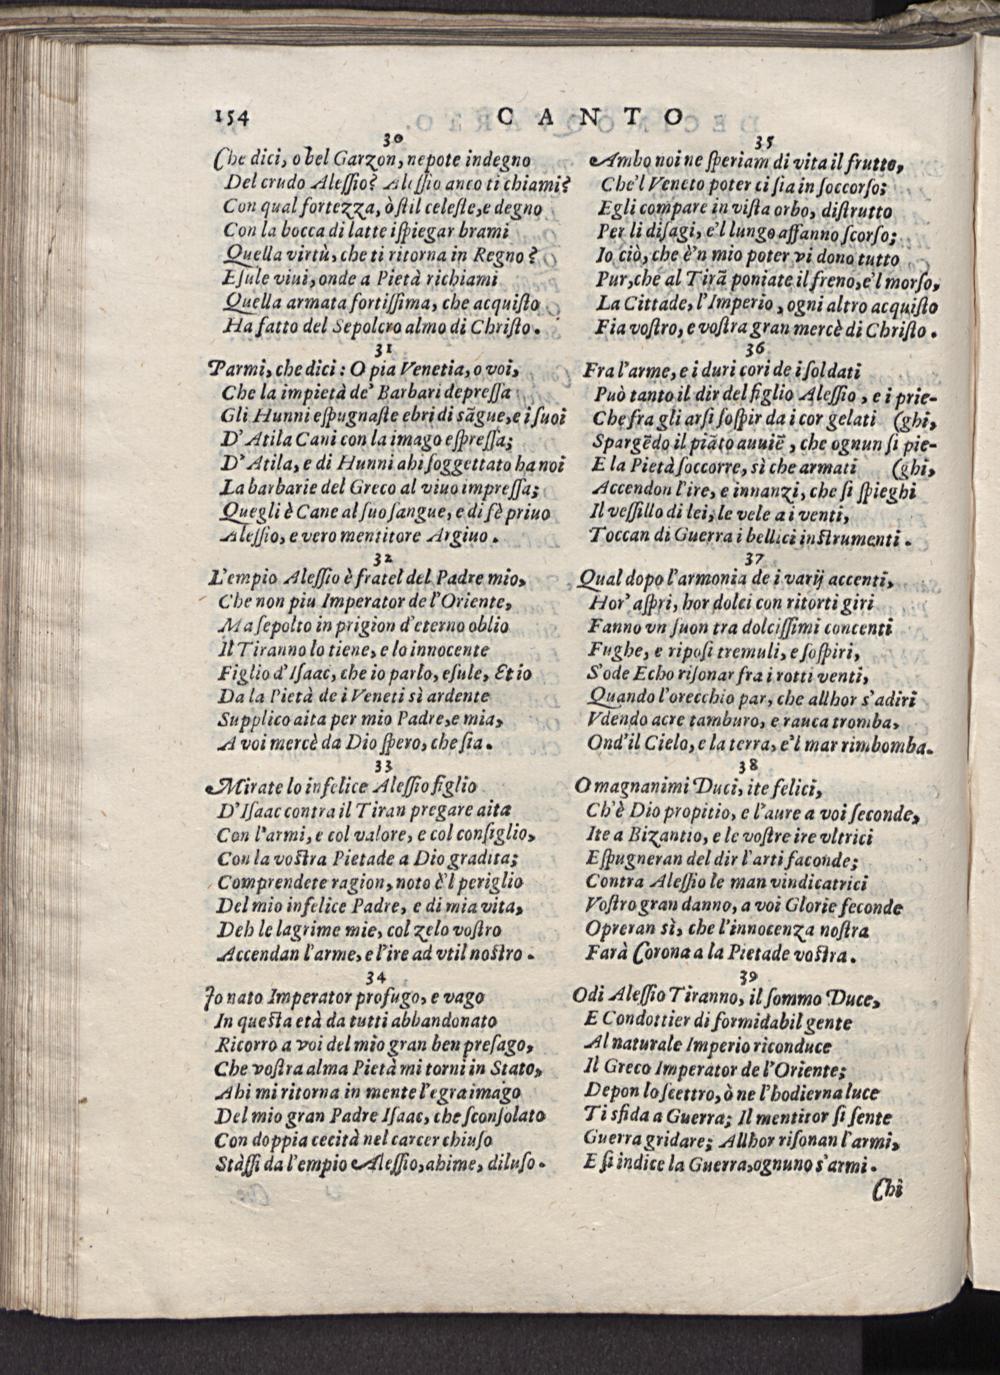 154
CANTO
30
Che dici, o bel Garzon, nepote indegno
Del crudo Aleſſio? Aleſſio anco ti chiami?
Con qual fortezza, ò ſtil celeſte, e degno
Con la bocca di latte iſpiegar brami
Quella virtù, che ti ritorna in Regno?
Eſule viui, onde a Pietà richiami
Quella armata fortiſſima, che acquiſto
Ha fatto del Sepolcro almo di Chriſto.
31
Parmi, che dici: O pia Venetia, o voi,
Che la impietà de' Barbari depreſſa
Gli Hunni eſpugnaſte ebri di sãgue, e i ſuoi
D'Atila Cani con la imago eſpreſſa;
D'Atila, e di Hunni ahi ſoggettato ha noi
La barbarie del Greco al viuo impreſſa;
Quegli è Cane al ſuo ſangue, e di fè priuo
Aleſſio, e vero mentitore Argiuo.
32
L'empio Aleſſio è fratel del Padre mio,
Che non piu Imperator de l'Oriente,
Ma ſepolto in prigion d'eterno oblio
Il Tiranno lo tiene, e lo innocente
Figlio d'Iſaac, che io parlo, eſule, Et io
Da la Pietà de i Veneti sì ardente
Supplico aita per mio Padre, e mia,
A voi mercè da Dio ſpero, che ſia.
33
Mirate lo infelice Aleſſio figlio
D'Iſaac contra il Tiran pregare aita
Con l'armi, e col valore, e col conſiglio,
Con la voſtra Pietade a Dio gradita;
Comprendete ragion, noto è'l periglio
Del mio infelice Padre, e di mia vita,
Deh le lagrime mie, col zelo voſtro
Accendan l'arme, e l'ire ad vtil noſtro.
34
Io nato Imperator profugo, e vago
In queſta età da tutti abbandonato
Ricorro a voi del mio gran ben preſago,
Che voſtra alma Pietà mi torni in Stato,
Ahi mi ritorna in mente l'egra imago
Del mio gran Padre Iſaac, che ſconſolato
Con doppia cecità nel carcer chiuſo
Stàſſi da l'empio Aleſſio, ahime, diluſo.
35
Ambo noi ne ſperiam di vita il frutto,
Che'l Veneto poter ci ſia in ſoccorſo;
Egli compare in viſta orbo, diſtrutto
Per li diſagi, e'l lungo affanno ſcorſo;
Io ciò, che è'n mio poter vi dono tutto
Pur, che al Tirã poniate il freno, e'l morſo,
La Cittade, l'Imperio, ogni altro acquiſto
Fia voſtro, e voſtra gran mercè di Chriſto.
36
Fra l'arme, e i duri cori de i ſoldati
Può tanto il dir del figlio Aleſſio, e i prie-
Che fra gli arſi ſoſpir da i cor gelati (ghi,
Spargẽdo il piãto auuiẽ, che ognun ſi pie-
E la Pietà ſoccorre, sì che armati (ghi,
Accendon l'ire, e innanzi, che ſi ſpieghi
Il veſſillo di lei, le vele a i venti,
Toccan di Guerra i bellici inſtrumenti.
37
Qual dopo l'armonia de i varij accenti,
Hor' aſpri, hor dolci con ritorti giri
Fanno vn ſuon tra dolciſſimi concenti
Fughe, e ripoſi tremuli, e ſoſpiri,
S'ode Echo riſonar fra i rotti venti,
Quando l'orecchio par, che allhor s'adiri
Vdendo acre tamburo, e rauca tromba,
Ond'il Cielo, e la terra, e'l mar rimbomba.
38
O magnanimi Duci, ite felici,
Ch'è Dio propitio, e l'aure a voi ſeconde,
Ite a Bizantio, e le voſtre ire vltrici
Eſpugneran del dir l'arti faconde;
Contra Aleſſio le man vindicatrici
Voſtro gran danno, a voi Glorie feconde
Opreran sì, che l'innocenza noſtra
Farà Corona a la Pietade voſtra.
39
Odi Aleſſio Tiranno, il ſommo Duce,
E Condottier di formidabil gente
Al naturale Imperio riconduce
Il Greco Imperator de l'Oriente;
Depon lo ſcettro, ò ne l'hodierna luce
Ti sfida a Guerra; Il mentitor ſi ſente
Guerra gridare; Allhor riſonan l'armi,
E ſi indice la Guerra, ognuno s'armi.
Chi